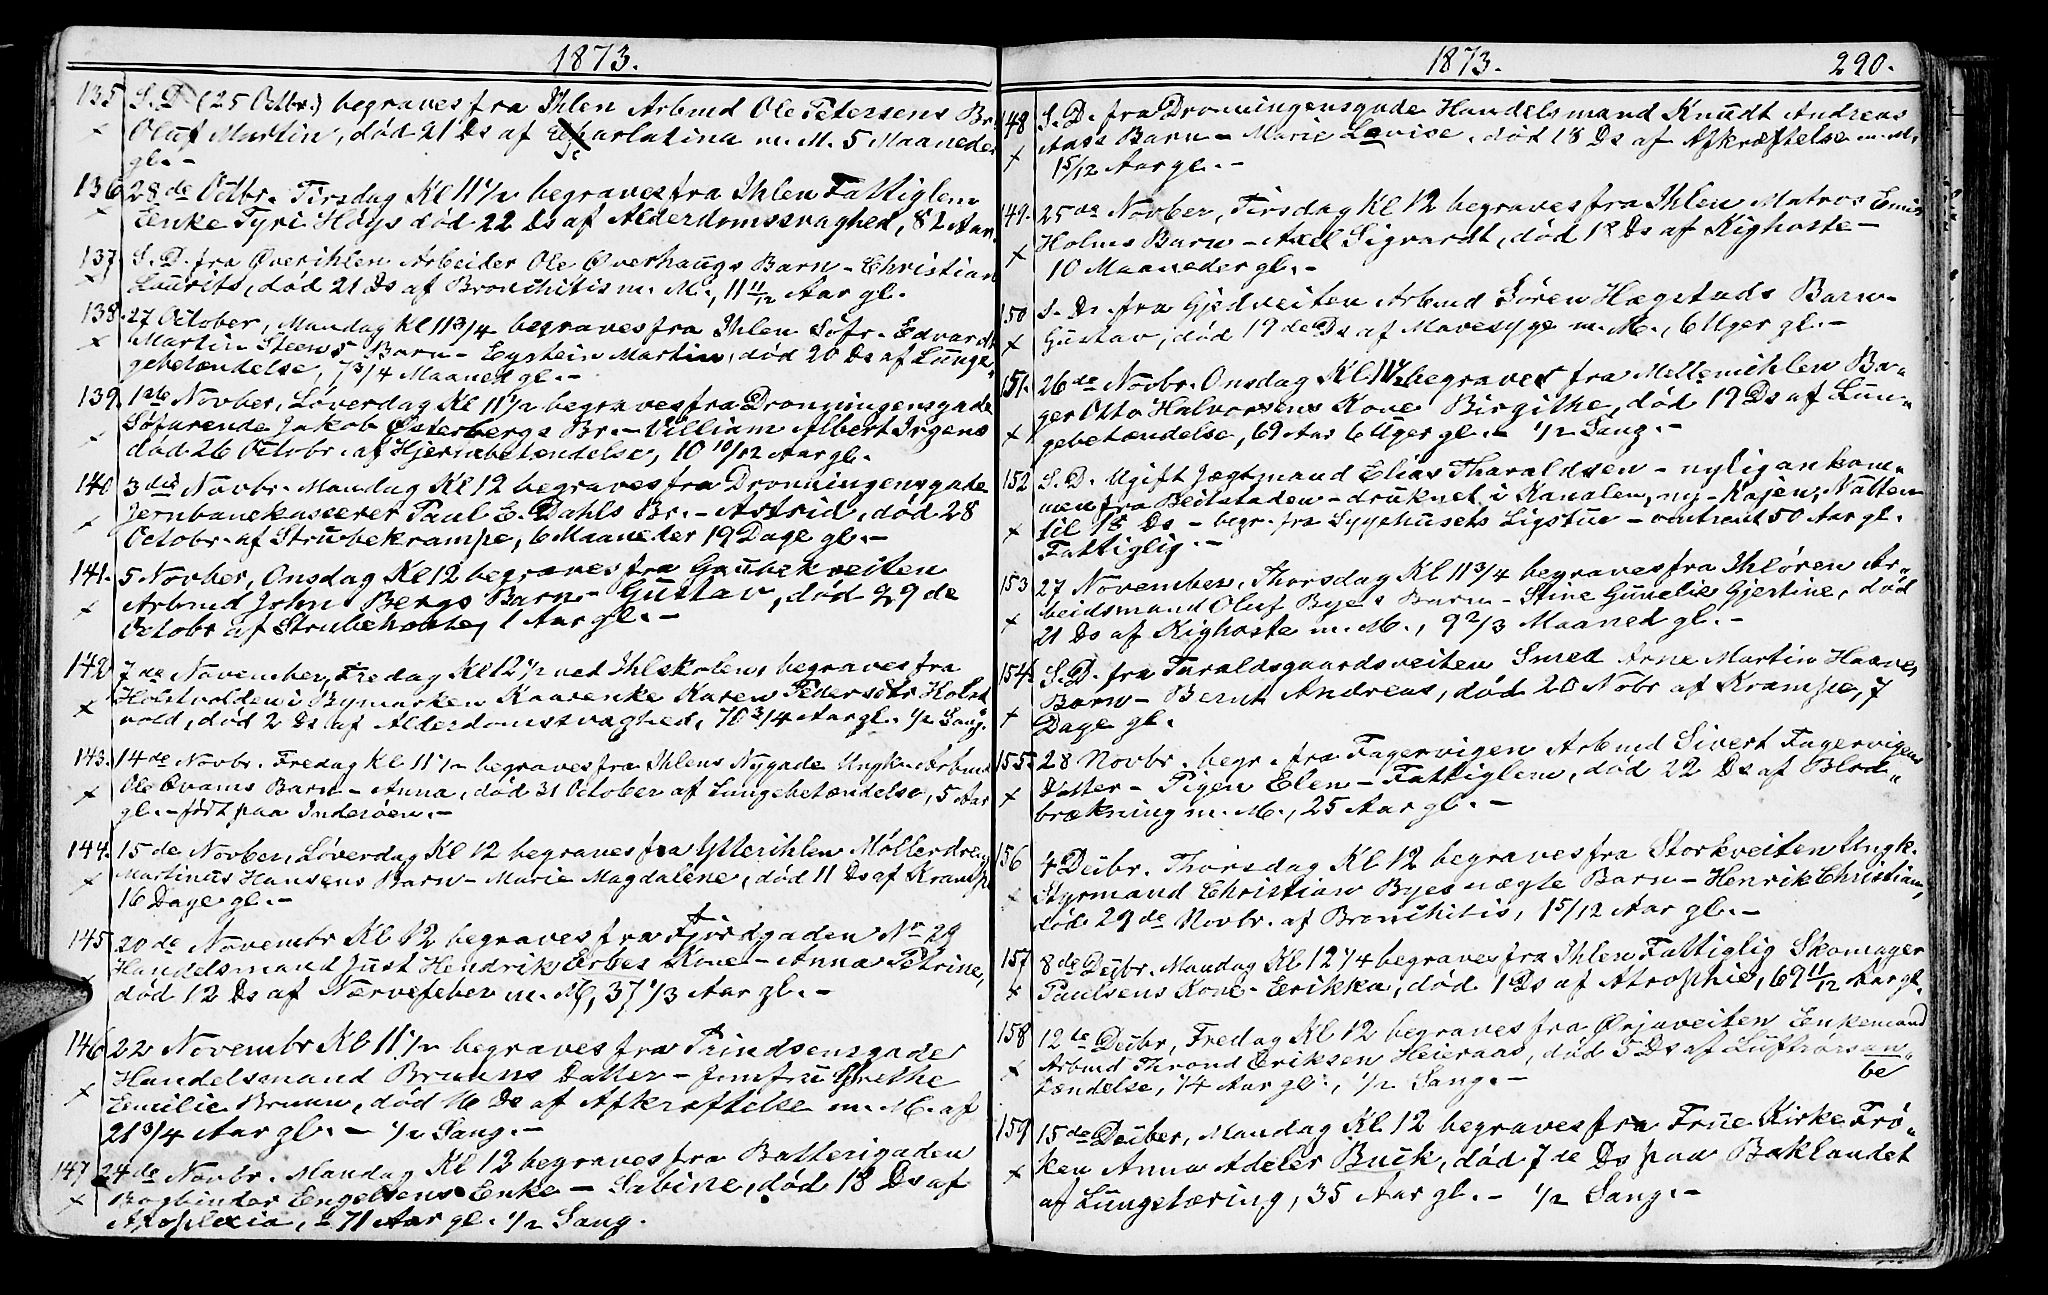 1873.
135 S. D. (25 Octbr.) begraves fra Ihlen Arbmd Ole Petersens Br.
Oluf Martin, død 21 Ds af Scarlatina m. M. 5 Maaneder
gl. -
136 28de Octbr. Tirsdag Kl 11 1/2 begraves fra Ihlen Fattiglem
Enke Tyri Høys død 22 Ds af Alderdomssvaghed, 82 Aar.
137 S. D. fra Øverihlen Arbeider Ole Overhaugs Barn - Christian
Laurits, død 21 Ds af Bronchitis m. M., 1 11/12 Aar gl.
138. 27 October, Mandag Kl 11 3/4 begraves fra Ihlen Søfr. Edvardt
Martin Steens Barn - Eystein Martin, død 20 Ds af Lunge-
gebetændelse, 7 3/4 Maaned gl. -
139. 1ste Novber, Løverdag Kl 11 1/2 begraves fra Dronningensgade
Søfarende Jakob Østerbergs Br. - William Albert Irgens
død 26 Octobr. af Hjernebetændelse, 10 10/12 Aar gl.
140 3die Novbr. Mandag Kl 12 begraves fra Dronningensgade
Jernbanekasserer Paul E. Dahls Br. - Astrid, død 28
Octobr. af Strubekrampe, 6 Maaneder 19 Dage gl. -
141. 5 Novber, Onsdag Kl 12 begraves fra Grubekveiten
Arbmd John Bergs Barn - Gustav, død 29de
Octobr af Strubehoste, 1 Aar gl. -
142 7de November, Fredag Kl 12 1/2 ved Ihlskolen, begraves fra
Holstvolden i Bymarken Kaarenke Karen Pedersdtr Holst-
vold, død 2 Ds af Alderdomssvaghed, 70 3/4 Aar gl. 1/2 Sang.
143. 14de Novbr. Fredag Kl 11 1/2 begraves fra Ihlens Nygade Ungk. Arbmd
Ole Qvams Barn - Anna, død 31 October af Lungebetændelse, 5 Aar
gl. - født paa Inderøen. -
144. 15de Novber, Løverdag Kl 12 begraves fra Ytterihlen Møllerdreng
Martinus Hansens Barn - Marie Magdalene, død 11 Ds af Krampe
16 Dage gl. -
145 20de Novembr Kl 12 begraves fra Fjordgaden No 29
Handelsmand Just Hendrik Erbes Kone - Anna Petrine,
død 12 Ds af Nervefeber m. M, 37 1/3 Aar gl. -
146 22 Novembr Kl 11 1/2 begraves fra Prindsensgade
Handelsmand Bruuns Datter - Jomfru Grethe
Emilie Bruun, død 16 Ds af Afkræftelse m. M. af
21 3/4 Aar gl. - 1/2 Sang. -
147 24de Novbr. Mandag Kl 12 begraves fra Batterigaden
Bogbinder Engelsens Enke - Sabine, død 18 Ds af
Apoplexia, - 71 Aar gl. 1/2 Sang.
1873. 290.
148 S. D. fra Dronningensgade Handelsmand Knudt Andreas
Aass Barn - Marie Lovise, død 18 Ds af Afkræftelse m. M.
1 5/12 Aar gl. -
149. 25de Novber, Tirsdag Kl 12 begraves fra Ihlen Matros
Holms Barn - Axel Sigvardt, død 18 Ds af Kighoste -
10 Maaneder gl. -
150 S. D. fra Gjedveiten Arbmd Søren Hægstads Barn -
Gustav, død 19de Ds af Mavesyge m. M., 6 Uger gl. -
151. 26de Novbr. Onsdag Kl 11 1/2 begraves fra Mellemihlen Ba-
ger Otto Halvorsens Kone Birgithe, død 19 Ds af Lun-
gebetændelse, 69 Aar 6 Uger gl. - 1/2 Sang. -
152 S. D. Ugift Jægtmand Elias Tharaldsen - nylig ankom-
men fra Beitstaden - druknet i Kanalen, ny-Kajen, Natten
til 18 Ds - begr. fra Sygehusets Ligstue - omtrent 50 Aar gl.
Fattiglig. -
153 27 November, Thorsdag Kl 11 3/4 begraves fra Ihløren Ar-
beidsmand Oluf Byes Barn - Stine Gunelie Gjertine, død
21 Ds af Kighoste m. M., 9 2/3 Maaned gl. -
154 S. D. fra Taraldsgaardsveiten Smed Arne Martin Haaves
Barn - Bernt Andreas, død 20 Nobr af Krampe, 7
Dage gl.
155. 28 Novbr. begr. fra Fagervigen Arbmd Sivert Fagervigens
Datter - Pigen Elen - Fattiglem, død 22 Ds af Blod-
brækning m. M., 25 Aar gl. -
156 4 Decbr. Thorsdag Kl 12 begraves fra Storkveiten Ungk.
Styrmand Christian Byes uægte Barn - Henrik Christian,
død 29de Novbr. af Bronchitis, 1 5/12 Aar gl. -
157 8de Decbr. Mandag Kl 12 1/4 begraves fra Ihlen Fattiglig Skomager
Paulsens Kone - Erikka, død 1 Ds af Atrophie, 69 11/12 Aar gl.
158 12te Decbr, Fredag Kl 12 begraves fra Ørjaveiten Enkemand
Arbmd Thrond Eriksen Heieraas, død 5 Ds af Luftrørsan-
be
tændelse, 1/4 Aar gl., 1/2 Sang. -
159 15de Decber, Mandag Kl 12 begraves fra Frue Kirke Frø-
ken Anna Adeler Buck, død 7de Ds paa Baklandet
af Lungetæring, 35 Aar gl. - 1/2 Sang. -